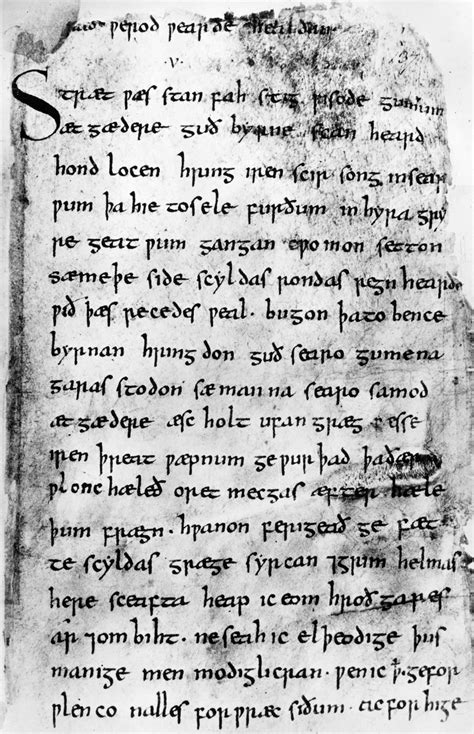 ƿerod ƿearde healdan
·v·
Stræt ƿæs stan fah stig ƿisode gumum
æt gædere guð byrne scan heard
hond locen hring iren scir song in sear
ƿum þa hie to sele furðum in hyra gry
re geat ƿum gangan cƿomon setton
sæmeþe side scyldas rondas regn hearde
ƿið þæs recedes ƿeal · bugon þa to bence
byrnan hring don guð searo gumena
garas stodon sæ man na searo samod
æt gædere æsc holt ufan græg ƿæs se
iren þreat ƿæpnum ge ƿur þad þa ðær
ƿlonc hæleð oret mecgas æfter hæle
þum frægn · hƿanon ferigeað ge fæt
te scyldas græge syrcan ⁊ grim helmas
here sceafta heap ic eom hroð gares
ar ⁊ om biht · ne seah ic el þeodige þus
manige men modiglicran · ƿen ic ꝥ · ge for
ƿlen co nalles for ƿræc siðum · ac for hige